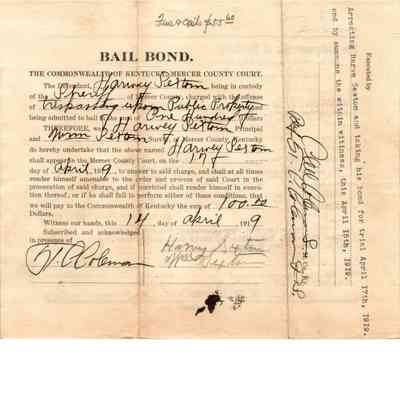 Fine & Costs $55 60
BAIL BOND.
THE COMMONWEALTH OF KENTUCKY, MERCER COUNTY COURT.
The Defendant, Harvey Sexton being in custody
of the Sheriff of Mercer County, charged with the offense
of trespassing upon Public Property
being admitted to bail in the sum of One Hundred
THEREFORE, we Harvey Sexton Principal
and Wm Sexton Surety, County, Kentucky
do hereby undertake that the above named Harvey Sexton
shall appear in the Mercer County Court, on the 17
day of April 1919, to answer to said charge, and shall at all times
render himself amenable to the order and process of said Court in the
prosecution of said charge, and if convicted shall render himself in execu-
tion thereof; or if he shall fail to perform either of these conditions, that
we will pay to the Commonwealth of Kentucky the sum of 100.00
Dollars.
Witness our hands, this 14 day of April 1919
Subscribed and acknowledged
in presence of
Harvey Sexton
Sexton
Coleman
Executed by
Arresting Harve Sexton and taking his bond for trial April 17th, 1919.
and by summons the within witness, this April 15th, 1919.
Coleman D.S.